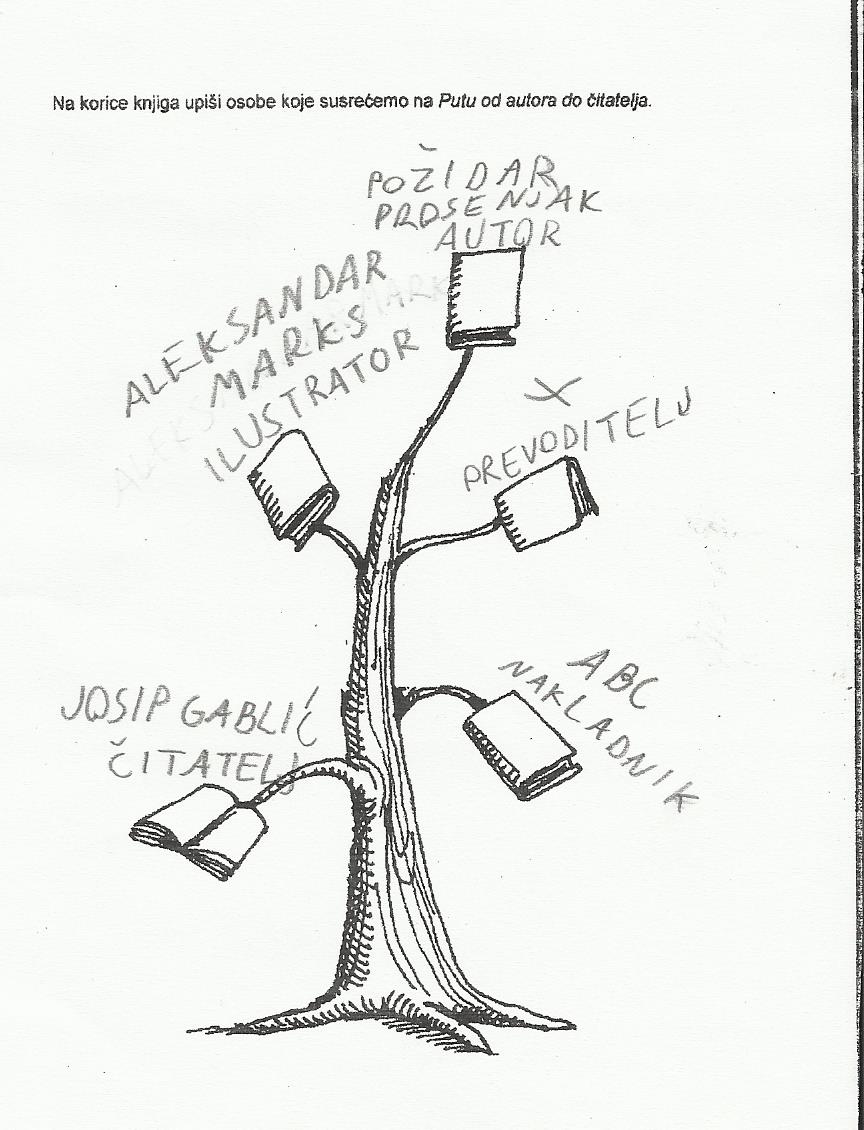 Na korice knjiga upiši osobe koje susrećemo na Putu od autora do čitatelja.
POŽIDAR
PROSENJAK
AUTOR
ALEKSANDAR
MARKS
ILUSTRATOR
X
PREVODITELJ
ABC
NAKLADNIK
JOSIP GABLIĆ
ČITATELJ